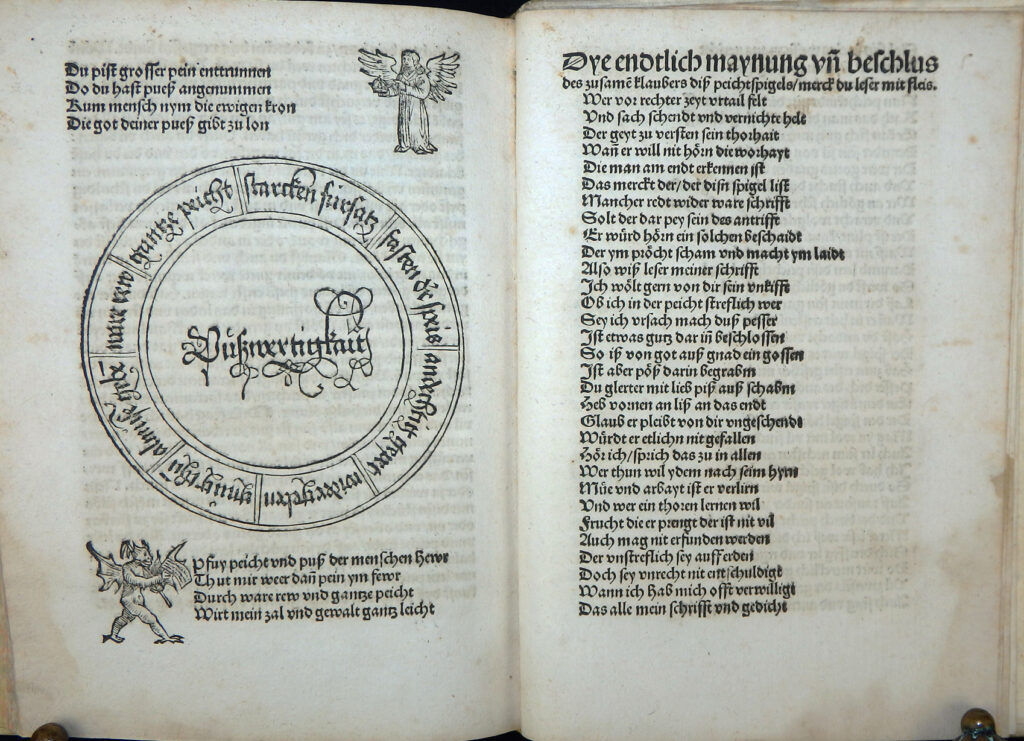 Du pist grosser pein enttrunnen
Do du hast pueß angenummen
Kum mensch nym die ewigen kron
Die got deiner pueß gibt zu lon
starcken fürsatz
fasten d speis
andechtig gepet
widergeben
almusen geben
ware rew
gantze peicht
Pußwertigkait
Pfuy peicht vnd puß der menschen hewr
Thut mir weer dañ pein ym fewr
Durch ware rew vnd gantze peicht
Wirt mein zal vnd gewalt gantz leicht
Dye endtlich maynung vñ beschlus
des zusamẽ klaubers diß peichtspigels/merck du leser mit fleis.
Wer vor rechter zeyt vrtail felt
Vnd sach schendt vnd vernichte helt
Der geyt zu versten sein thorhait
Wañ er will nit hörn die worhayt
Die man am endt erkennen ist
Das merckt der/der disn spigel list
Mancher redt wider ware schrifft
Solt der dar pey sein des antrifft
Er würd hörn ein solchen beschaidt
Der ym pröcht scham vnd macht ym laidt
Also wiß leser meiner schrifft
Ich wölt gern von dir sein vnkifft
Ob ich in der peicht streflich wer
Sey ich vrsach mach duß pesser
Ist etwas gutz dar iñ beschlossen
So iß von got auß gnad ein gossen
Ist aber pöß darin begrabm
Du glerter mit lieb piß auß schabm
Heb vornen an liß an das endt
Glaub er pleibt von dir vngeschendt
Würdt er etlichn nit gefallen
Hör ich/sprich das zu in allen
Wer thun wil ydem nach seim hyrn
Müe vnd arbayt ist er verlirn
Vnd wer ein thoren lernen wil
Frucht die er prengt der ist nit vil
Auch mag nit erfunden werden
Der vnstreflich sey auff erden
Doch sey vnrecht nit entschuldigt
Wann ich hab mich offt verwilligt
Das alle mein schrifft vnd gedicht